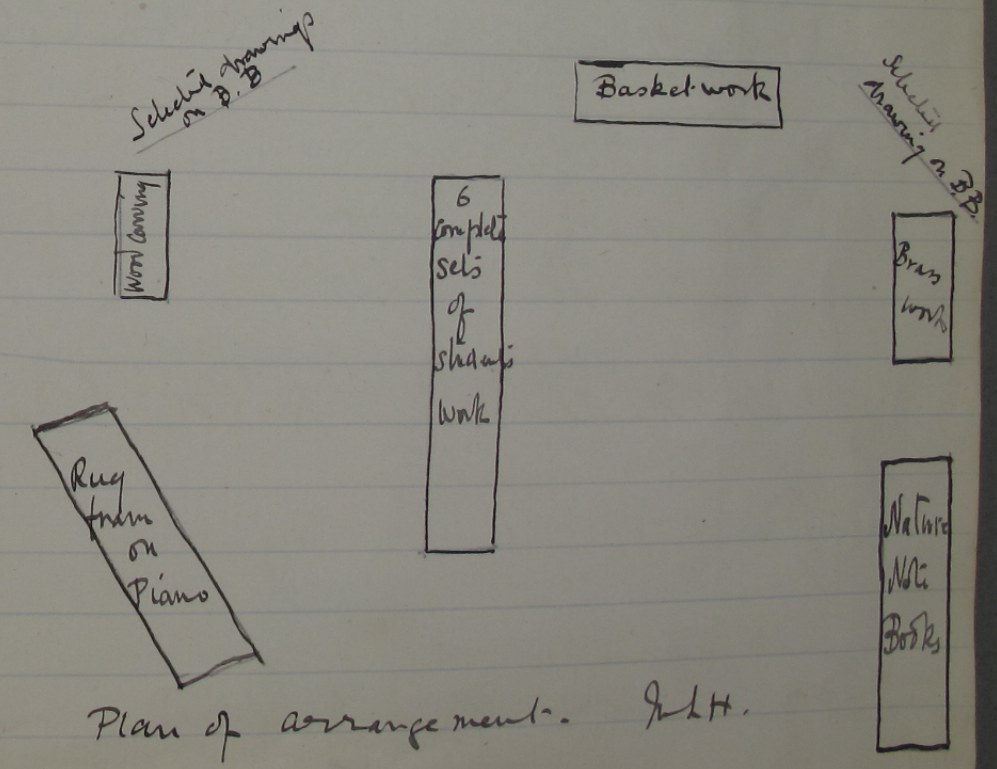 Selected drawings
on B.B
Basket-work
Selected
drawing on B.B.
Wood Carving
6
complete
sets
of
students
work
Brass
work
Rug
on
Piano
Nature
Note
Books
Plan of arrangement.